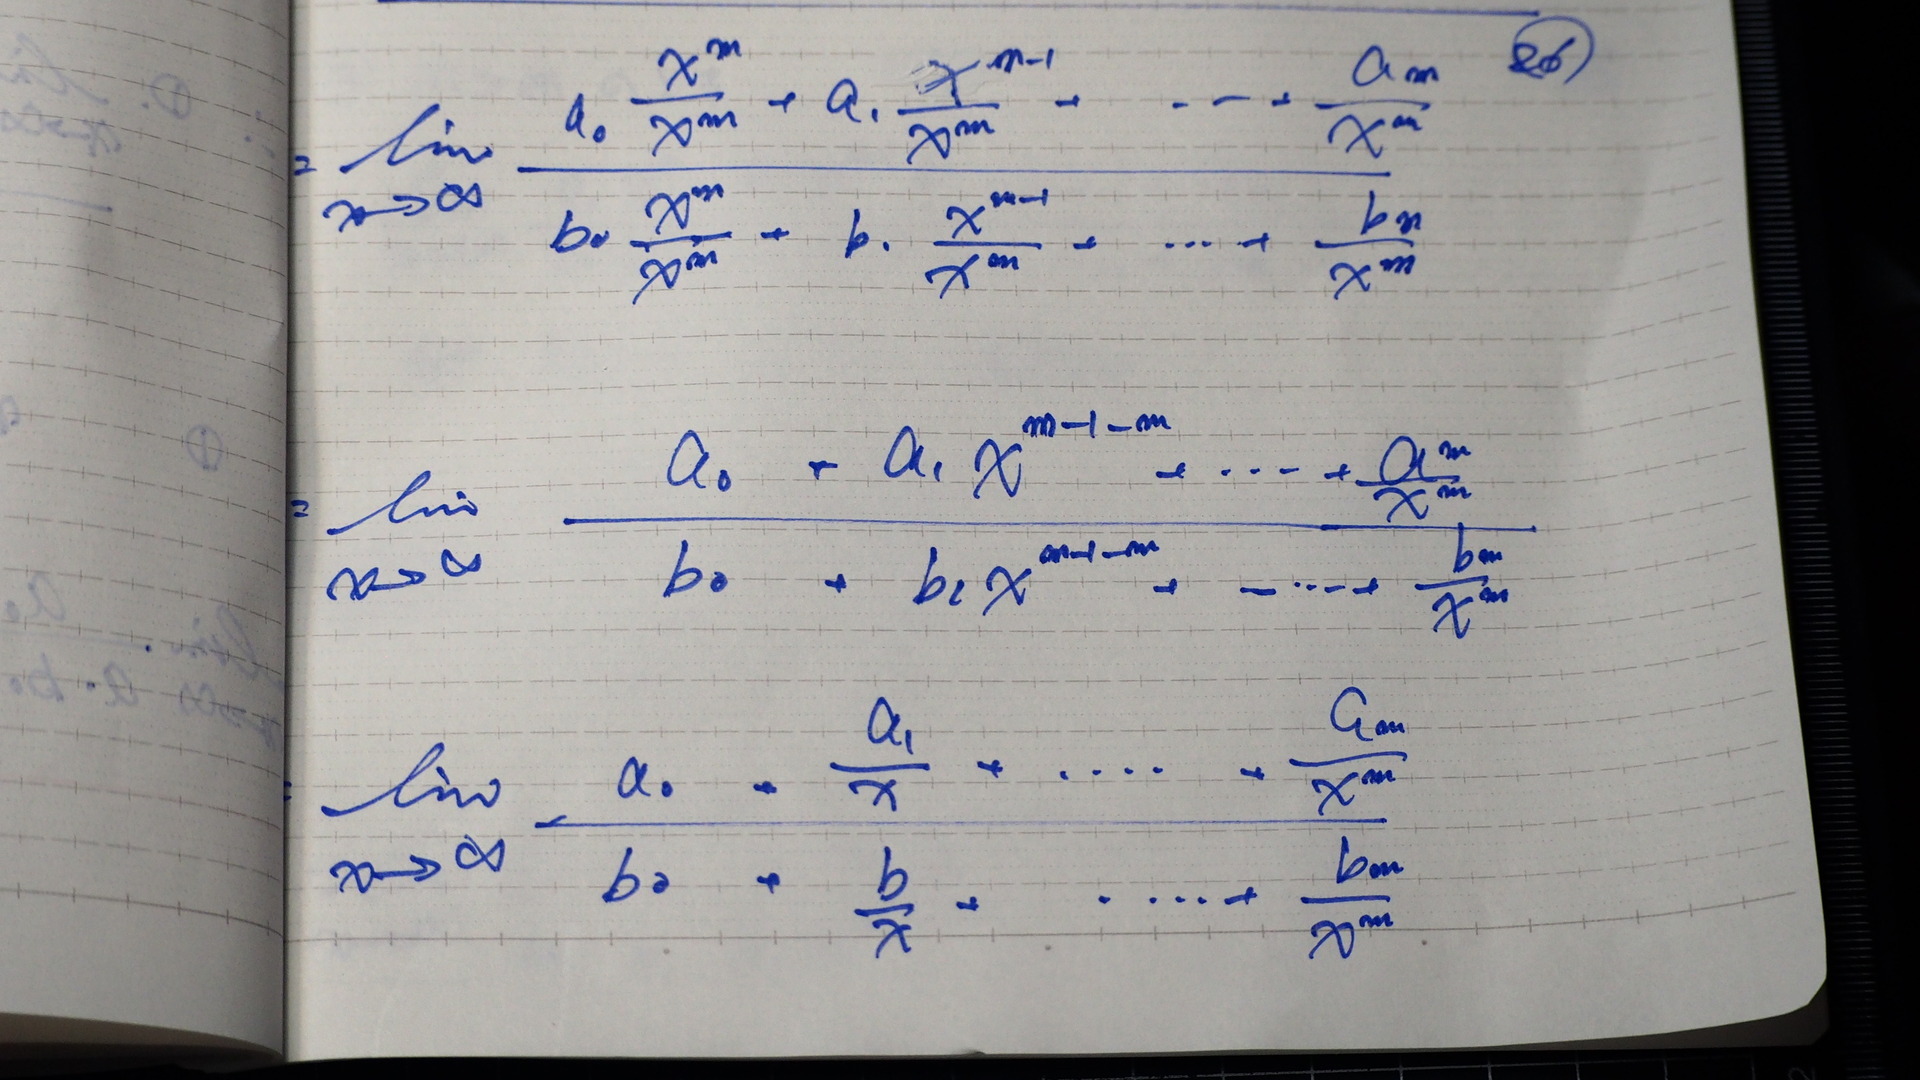 26
= lim x→∞ (a₀ xᵐ/xᵐ + a₁ xᵐ⁻¹/xᵐ + ---- + aₘ/xᵐ) / (b₀ xᵐ/xᵐ + b₁ xᵐ⁻¹/xᵐ + .... + bₘ/xᵐ)
= lim x→∞ (a₀ + a₁ xᵐ⁻¹⁻ᵐ + ---- + aᵐ/xᵐ) / (b₀ + b₁ xᵐ⁻¹⁻ᵐ + ---- + bₘ/xᵐ)
= lim x→∞ (a₀ + a₁/x + .... + aₘ/xᵐ) / (b₀ + b/x + ..... + bₘ/xᵐ)